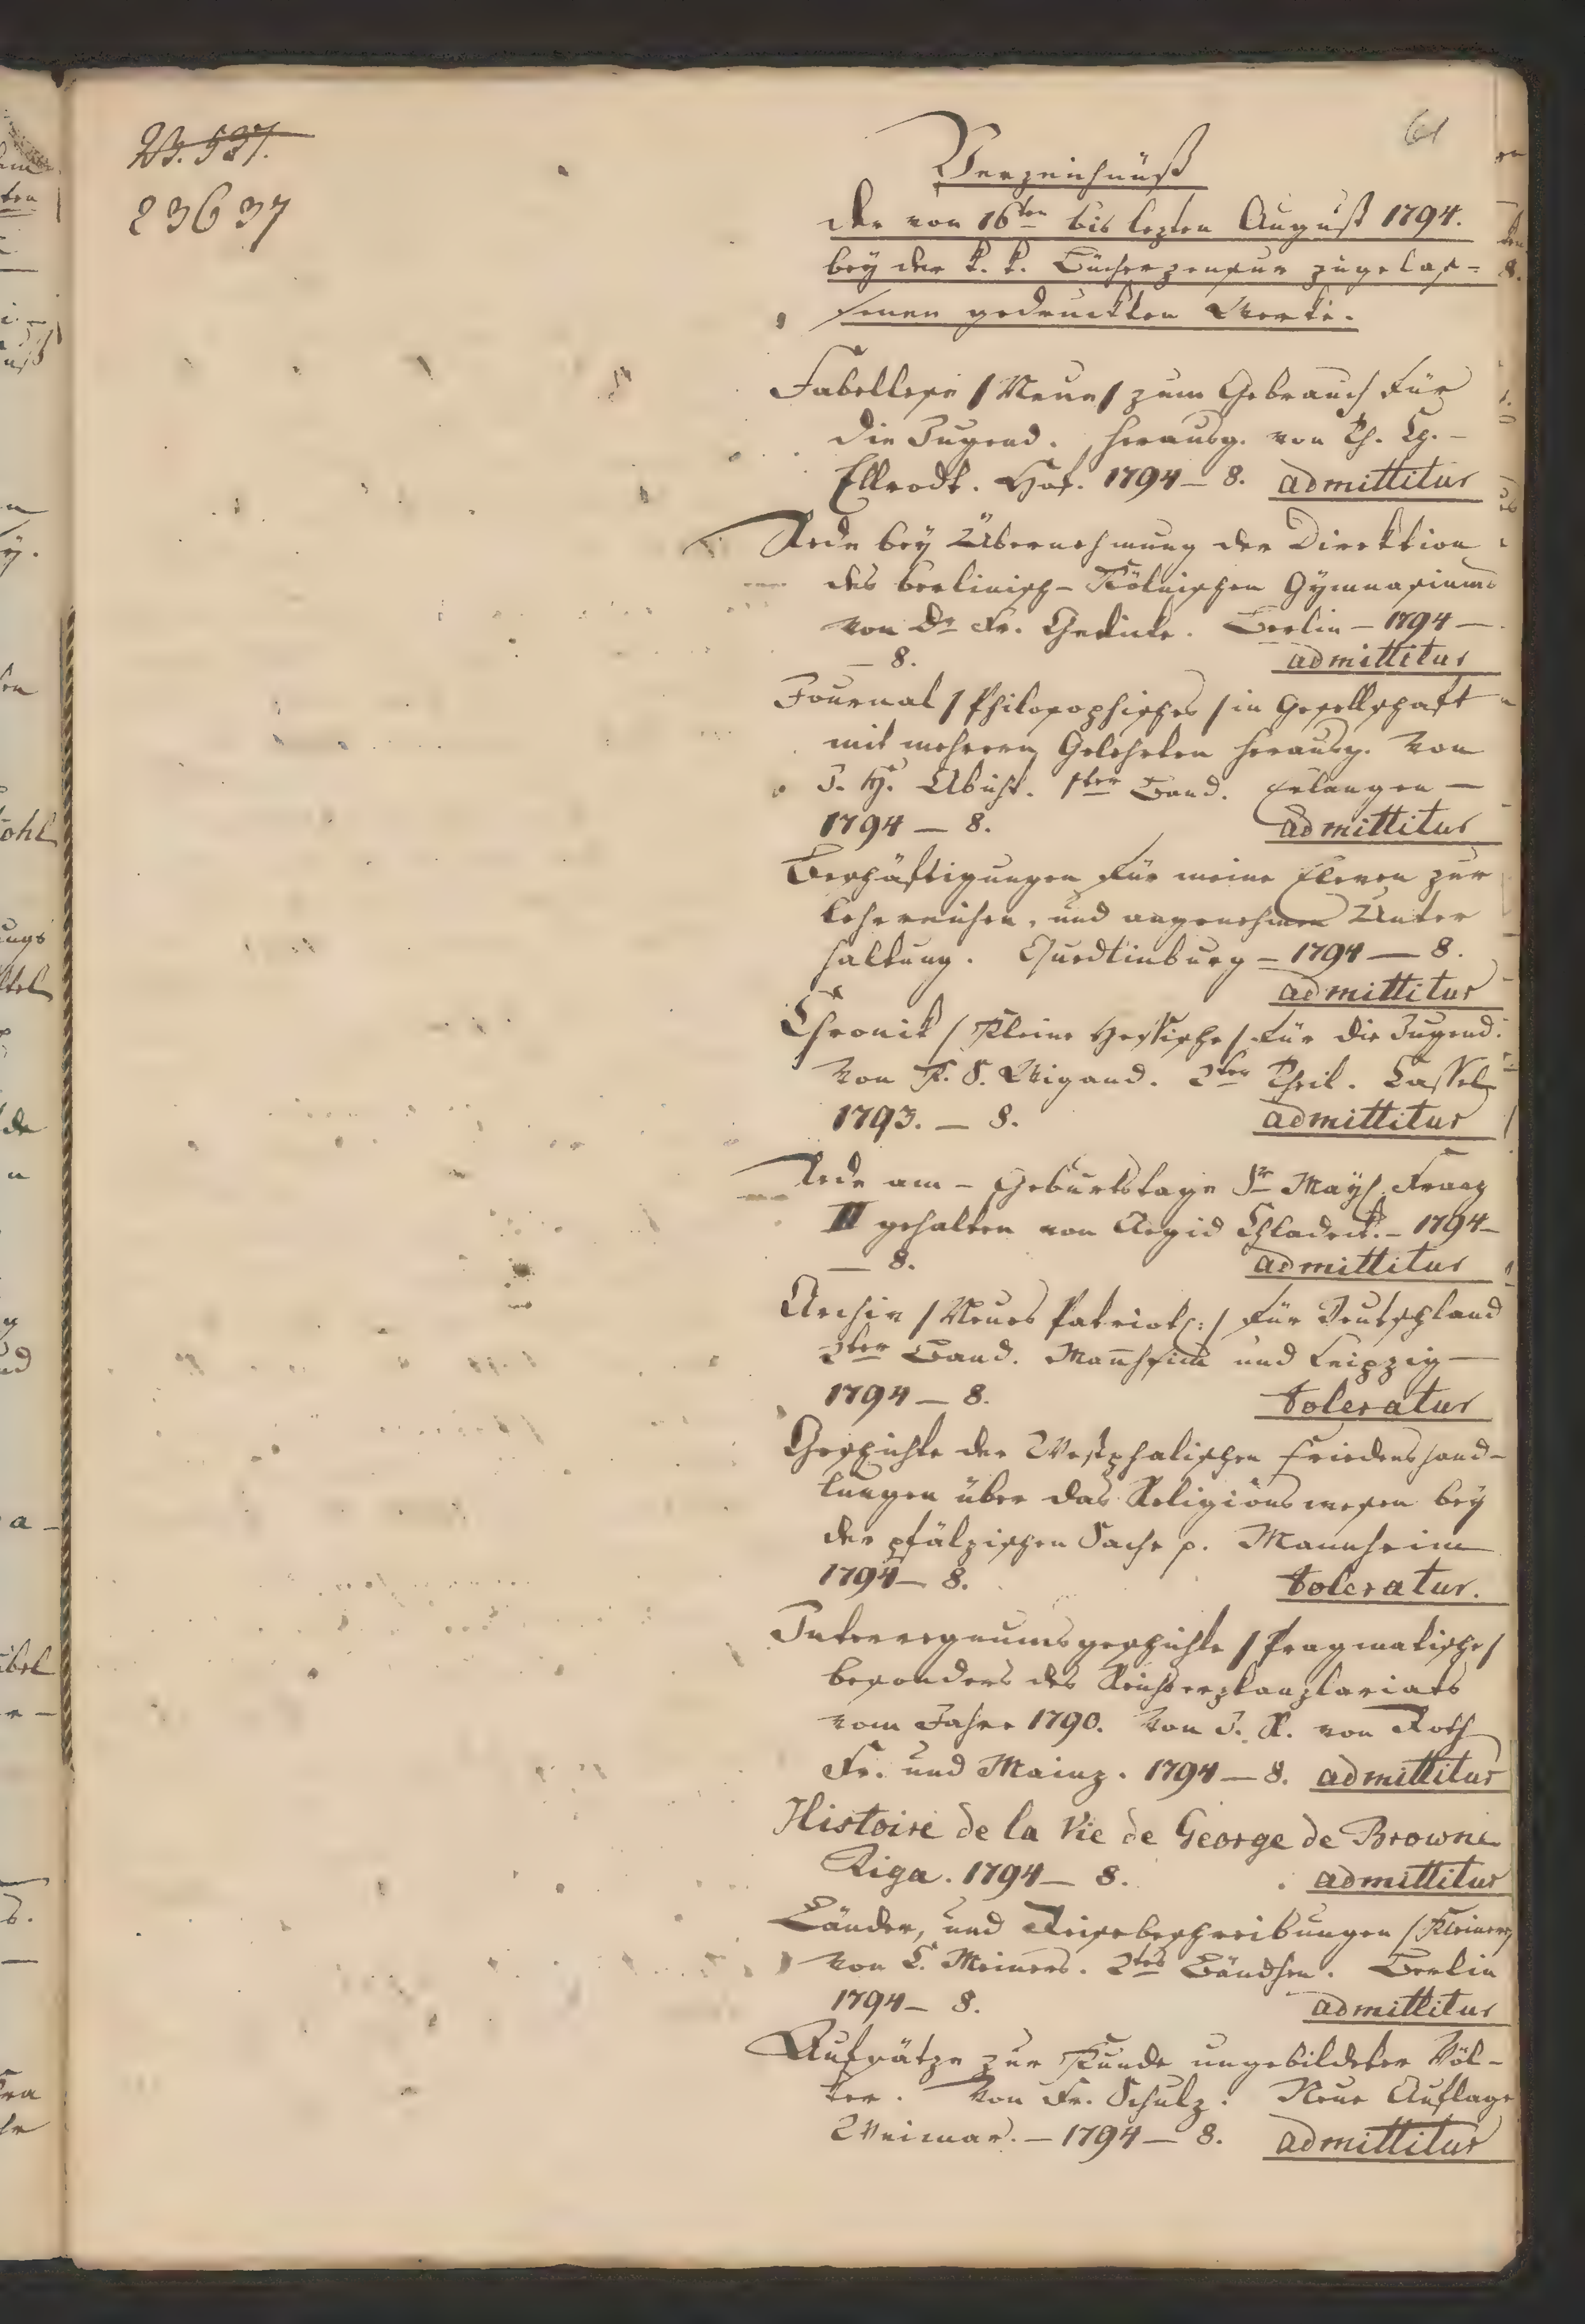 23.537.
23637
61
Verzeichnüß
der von 16ten bis lezten August 1794.
bey der k. k. Bücherzensur zugelas=
senen gedruckten Werke.
Fabellese / Neue / zum Gebrauch für
die Jugend. herausg. von Th. Ch. –
Ellrodt. Hof. 1794 – 8. admittitur
Rede bey Übernehmung der Direktion
des berlinisch – Kölnischen Gymnasiums
von Dr Fr. Gedicke. Berlin – 1794 –
– 8. admittitur
Journal / Philosophisches / in Gesellschaft
mit mehrern Gelehrten herausg. von
J. H. Abicht. 1ter Band. Erlangen –
1794 – 8. admittitur
Beschäftigungen für meine Eleven zur
lehrreichen, und angenehmen Unter
haltung. Quedlinburg – 1794 – 8.
admittitur
Chronik / Kleine Hessische / für die Jugend.
von K. S. Wigand. 2ter Theil. Cassel
1793. – 8. admittitur
Rede am – Geburtstage Sr Mays. Franz
II gehalten von Aegid Chladek. – 1794 –
– 8. admittitur
Archiv / Neues Patriot: / für Deutschland
2ter Band. Mannheim und Leipzig –
1794 – 8. toleratur
Geschichte der Westphalischen Friedenshand-
lungen über das Religionswesen bey
der pfälzischen Sache p. Mannheim
1794 – 8. toleratur.
Interregnumsgeschichte / Pragmatische /
besonders des Reichserzkanzlariats
vom Jahre 1790. von J. R. von Roth
Fr. und Mainz. 1794 – 8. admittitur
Histoire de la Vie de George de Browne
Riga. 1794 – 8. admittitur
Länder, und Reisebeschreibungen / Kleinere
von C. Meiners. 2tes Bändchen. Berlin
1794 – 8. admittitur
Aufsätze zur Kunde ungebildeter Völ-
ker. Von Fr. Schulz. Neue Auflage
Weimar. – 1794 – 8. admittitur